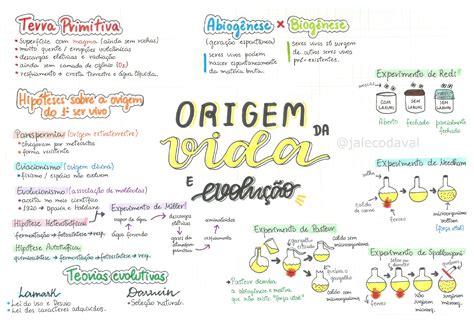 Terra Primitiva
• superfície com magma (ainda sem rochas)
• muito quente / erupções vulcânicas
• descargas elétricas e radiação
• ainda sem camada de ozônio (O3)
• resfriamento → crosta terrestre e água líquida.
Abiogênese × Biogênese
(geração espontânea)
seres vivos podem
nascer espontaneamente
da matéria bruta.
seres vivos só surgem
de outros seres vivos
pré-existentes.
Hipóteses sobre a origem
do 1º ser vivo
Panspermia (origem extraterrestre)
• chegaram por meteoritos
• forma resistente
Criacionismo (origem divina)
• fixismo / espécies não evoluem
Evolucionismo (associação de moléculas)
• aceita no meio científico
• 1920 → Oparin e Haldane
Hipótese Heterotrófica
fermentação → fotossíntese → resp.
Hipótese Autotrófica
fermentação → fotossíntese → resp.
ORIGEM
DA
vida
E evolução
@jalecodaval
Experimento de Redi
SEM
LARVAS
COM
LARVAS
aberto
fechado
parcialmente
fechado
Experimento de Needham
caldo de
carne
Experimento de Miller
vapor de água
descargas
elétricas
água
Experimento de Pasteur
caldo
nutritivo
Pasteur derruba
a abiogênese e mostra
que não existe "força vital"
Experimento de Spallanzani
microrganismos
"força vital"
Teorias evolutivas
Lamark
• Lei do Uso e Desuso
• Lei de caracteres adquiridos.
Darwin
• Seleção natural.